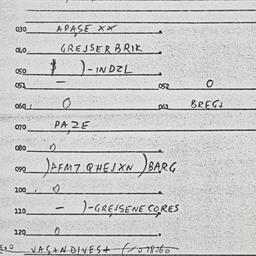 030 APASE XX
040 GREJSER BRIK
050 )-INDZL
051 — 052 0
060 0 061 BREG+
070 PAZE
080 0
090 )AFM7 QHEJXN )BARG
100 0
110 — )-GREJSENECORES
120 0
VAS+NDIVES+